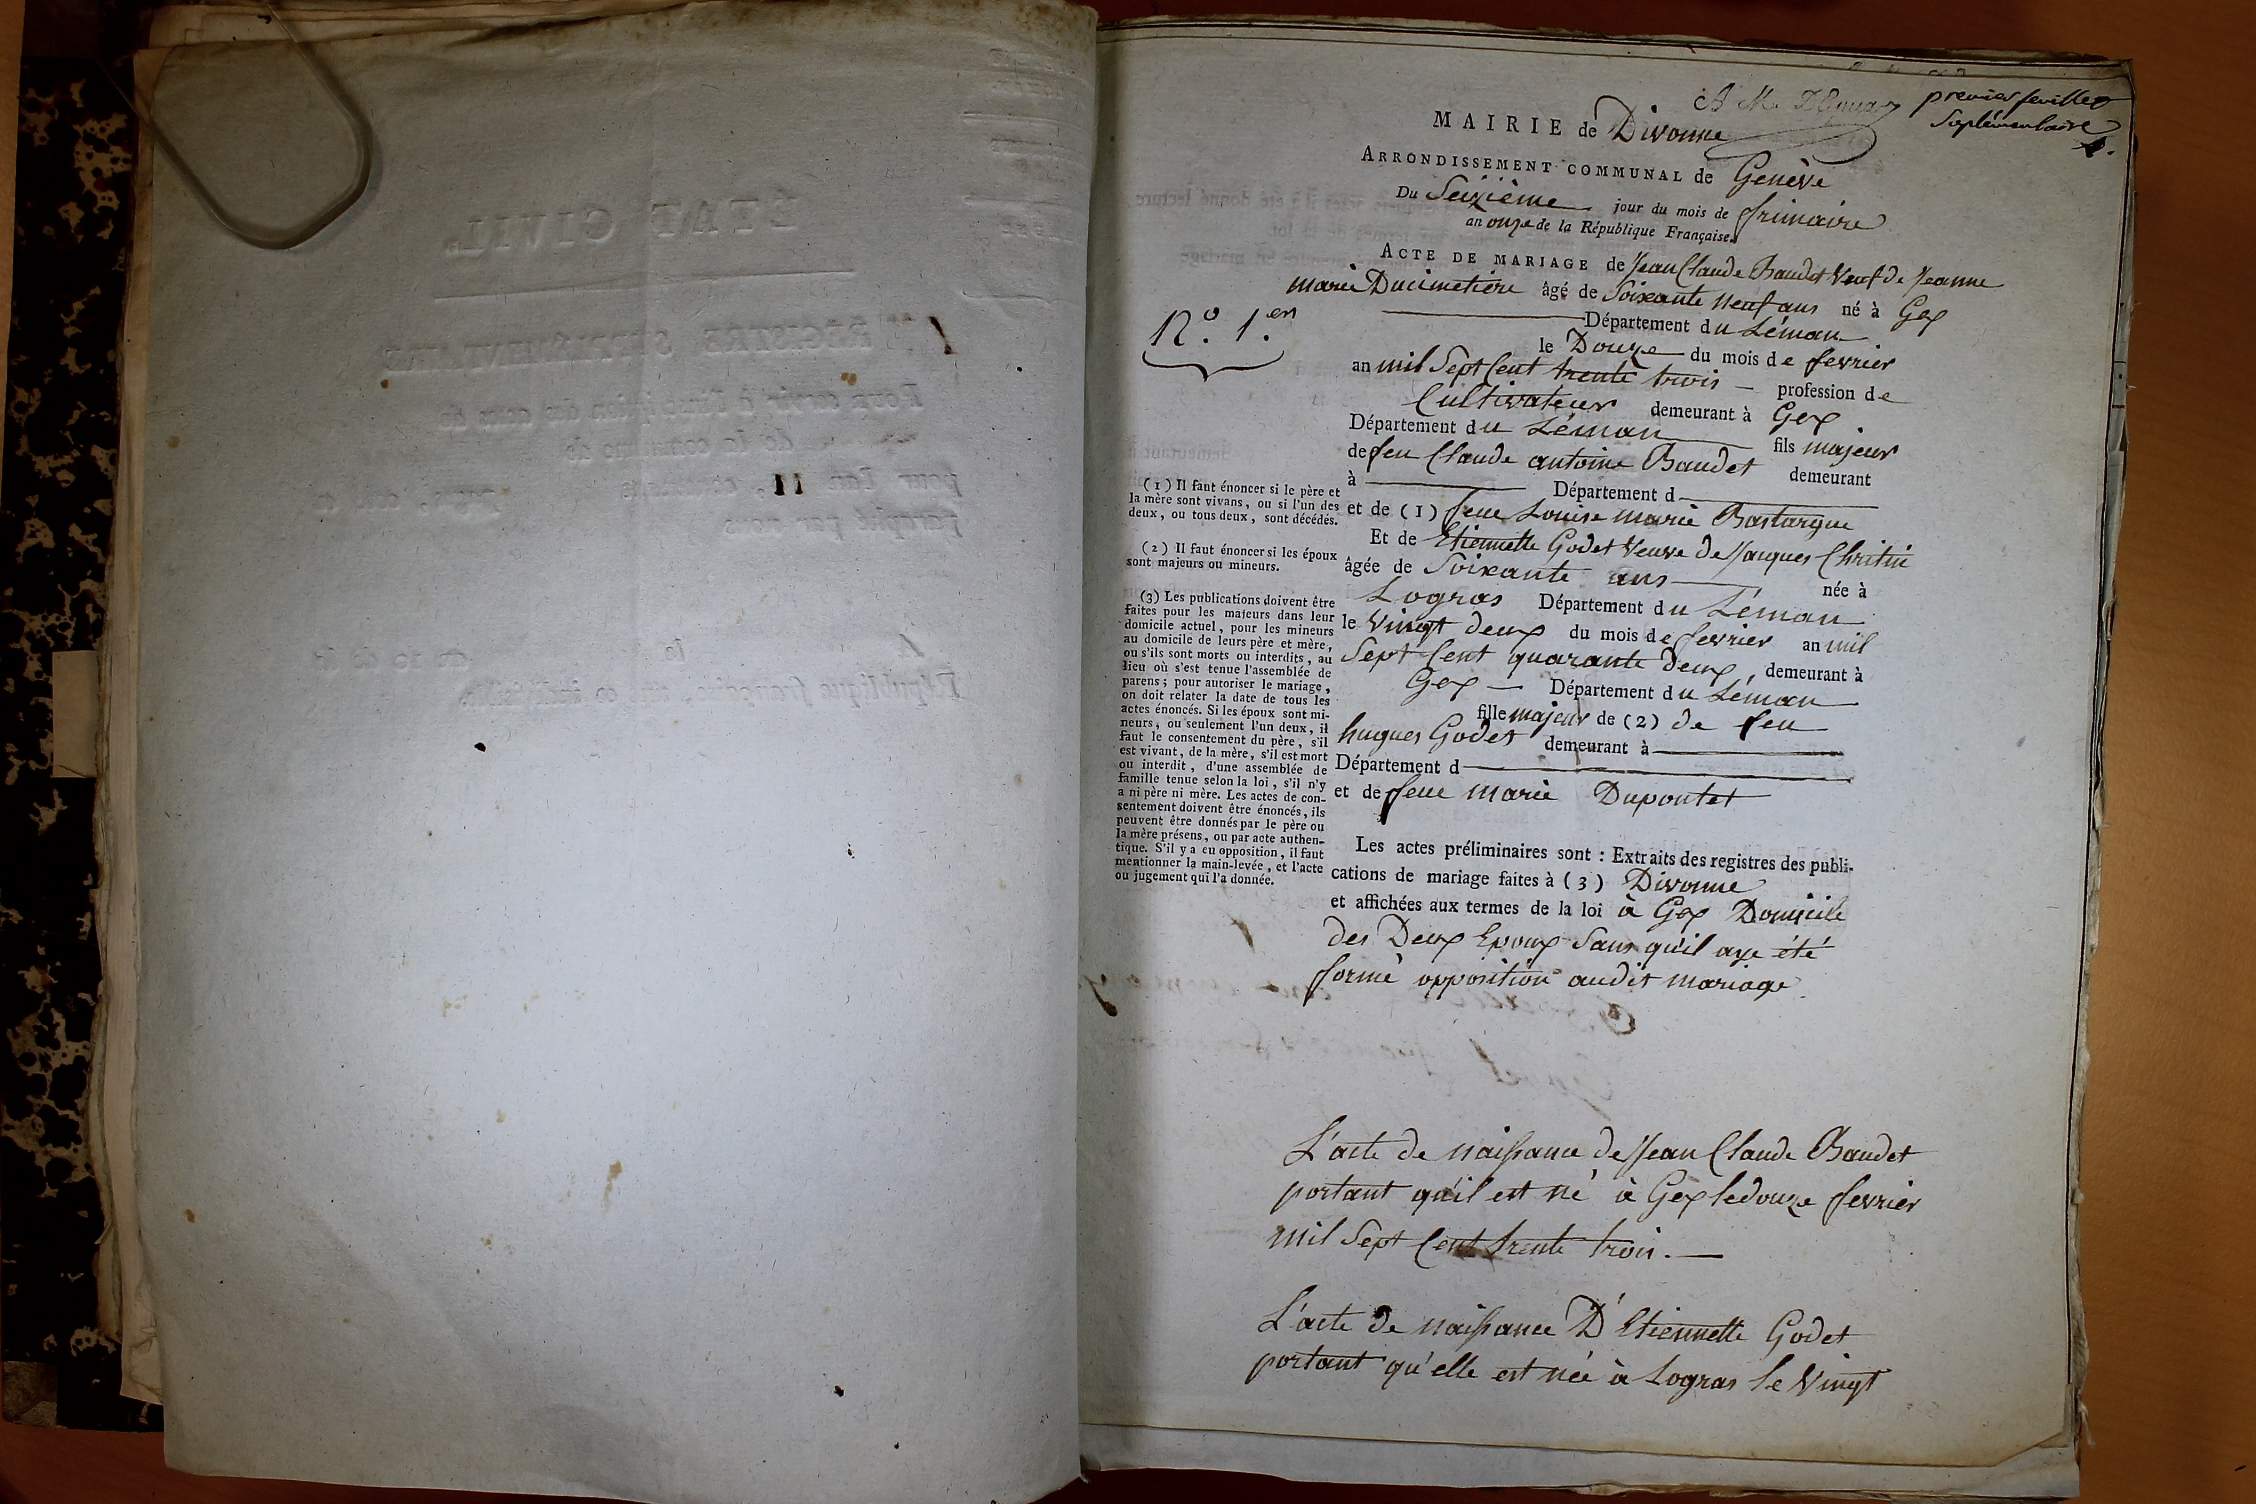 premier feuillet
Suplémentaire
1.
MAIRIE de Divonne
ARRONDISSEMENT COMMUNAL de Genève
Du Seizième jour du mois de frimaire
an onze de la République Française.
ACTE DE MARIAGE de Jean Claude Baudet Veuf de Jeanne
marie Ducimetière âgé de Soixante neuf ans né à Gex
N.º 1.er
Département du Léman
le Douze du mois de fevrier
an mil Sept Cent trente trois — profession de
Cultivateur demeurant à Gex
Département du Léman fils majeur
de feu Claude antoine Baudet demeurant
à Département d
et de (1) feue Louise marie Bastargue
Et de Etiennette Godet Veuve de Jacques Chritin
âgée de Soixante ans née à
Logras Département du Léman
le Vingt deux du mois de fevrier an mil
Sept Cent quarante Deux, demeurant à
Gex — Département du Léman
fille majeur de (2) de feu
hugues Godet demeurant à
Département d
et de feue marie Dupontet
(1) Il faut énoncer si le père et
la mère sont vivans, ou si l'un des
deux, ou tous deux, sont décédés.
(2) Il faut énoncer si les époux
sont majeurs ou mineurs.
(3) Les publications doivent être
faites pour les majeurs dans leur
domicile actuel, pour les mineurs
au domicile de leurs père et mère,
ou s'ils sont morts ou interdits, au
lieu où s'est tenue l'assemblée de
parens; pour autoriser le mariage,
on doit relater la date de tous les
actes énoncés. Si les époux sont mi-
neurs, ou seulement l'un deux, il
faut le consentement du père, s'il
est vivant, de la mère, s'il est mort
ou interdit, d'une assemblée de
famille tenue selon la loi, s'il n'y
a ni père ni mère. Les actes de con-
sentement doivent être énoncés, ils
peuvent être donnés par le père ou
la mère présens, ou par acte authen-
tique. S'il y a eu opposition, il faut
mentionner la main-levée, et l'acte
ou jugement qui l'a donnée.
Les actes préliminaires sont : Extraits des registres des publi-
cations de mariage faites à (3) Divonne
et affichées aux termes de la loi à Gex Domicile
des Deux Epoux Sans qu'il aye été
formé opposition audit mariage
L'acte de naissance de Jean Claude Baudet
portant qu'il est né à Gex le douze fevrier
mil Sept Cent trente trois. —
L'acte de naissance D'Etiennette Godet
portant qu'elle est née à Logras le Vingt